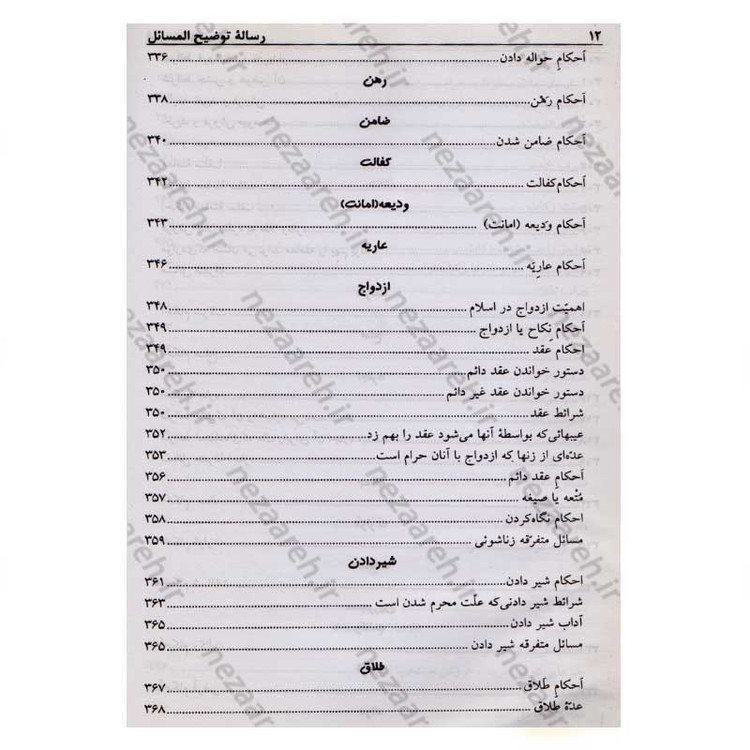 ۱۲ رسالهٔ توضیح المسائل
اَحکامِ حواله دادن ۳۳۶
رهن
اَحکام رَهْن ۳۳۸
ضامن
اَحکام ضامن شدن ۳۴۰
کفالت
اَحکام کفالت ۳۴۲
ودیعه(امانت)
اَحکام وَدیعه (امانت) ۳۴۳
عاریه
اَحکام عاریّه ۳۴۶
ازدواج
اهمیّت ازدواج در اسلام ۳۴۸
اَحکام نِکاح یا ازدواج ۳۴۹
احکام عَقد ۳۴۹
دستور خواندن عقد دائم ۳۵۰
دستور خواندن عقد غیرِ دائم ۳۵۰
شرائط عقد ۳۵۰
عیبهائی‌که بواسطهٔ آنها می‌شود عقد را بهم زد ۳۵۲
عدّه‌ای از زنها که ازدواج با آنان حرام است ۳۵۳
اَحکامِ عقد دائم ۳۵۶
مُتْعه یا صیغه ۳۵۷
احکام نگاه‌کردن ۳۵۸
مسائل متفرّقه زناشوئی ۳۵۹
شیردادن
احکام شیر دادن ۳۶۱
شرائط شیر دادنی‌که علّت محرم شدن است ۳۶۳
آداب شیر دادن ۳۶۵
مسائل متفرقه شیر دادن ۳۶۵
طلاق
اَحکامِ طَلاق ۳۶۷
عدّهٔ طلاق ۳۶۸
nezaareh.ir